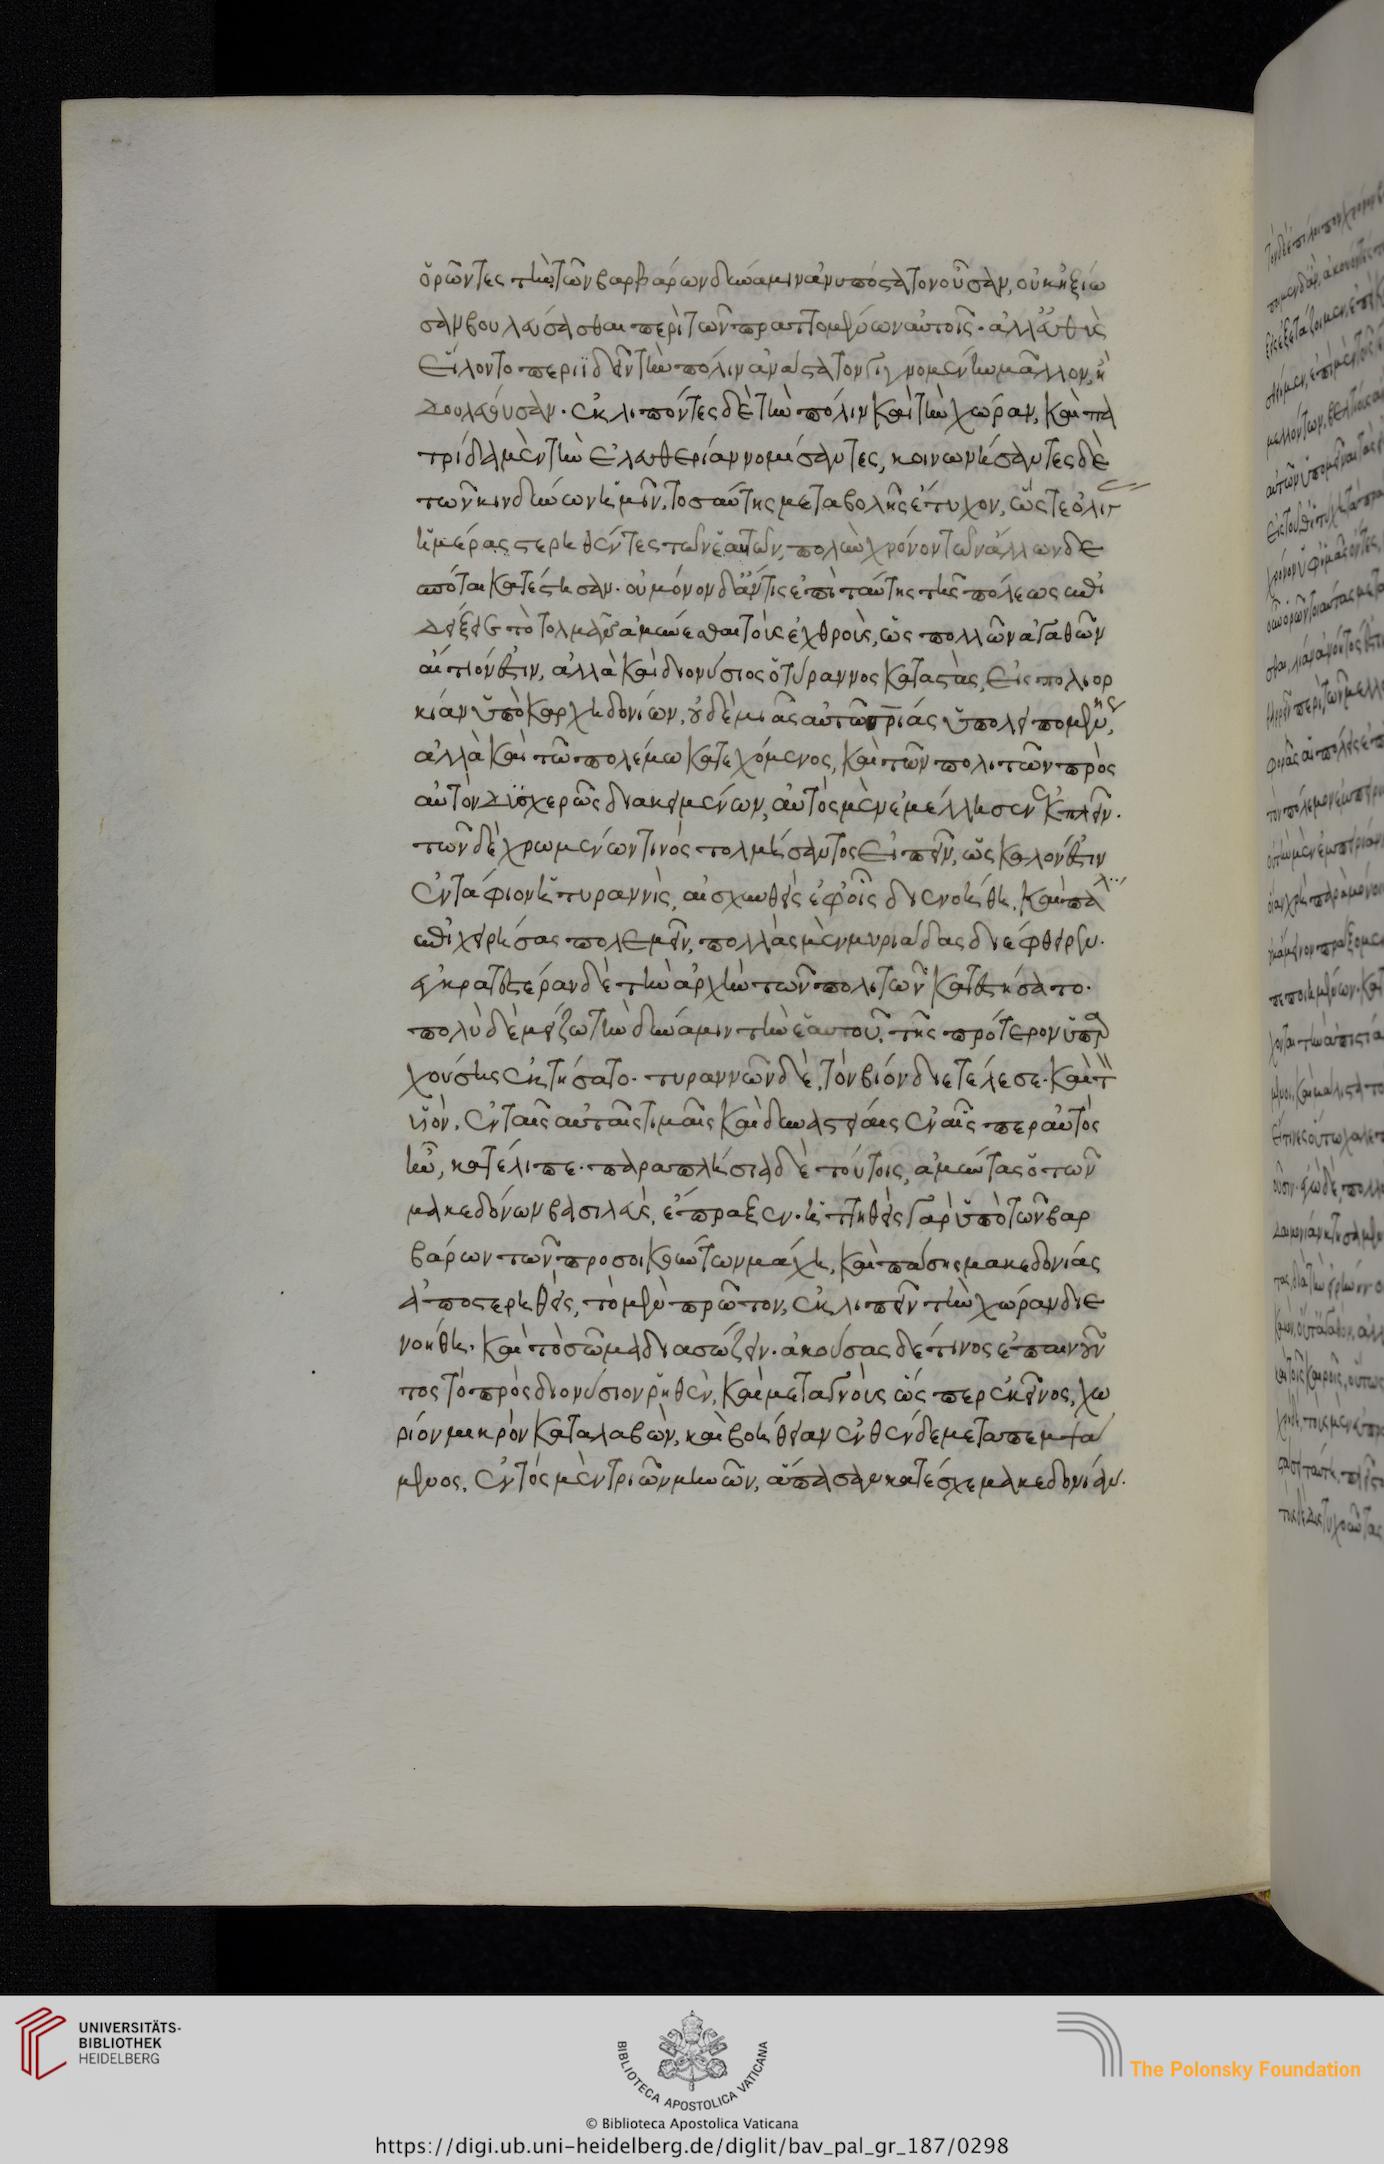 ὁρῶντες τὴν τῶν βαρβάρων δύναμιν ἀνυπόστατον οὖσαν, οὐκ ἠξίω
σαν βουλεύσασθαι περὶ τῶν πραττομένων αὐτοῖς· ἀλλ' εὐθὺς
εἵλοντο περιϊδεῖν τὴν πόλιν ἀνάστατον γιγνομένην μᾶλλον, ἢ
δουλεύουσαν. ἐκλιπόντες δὲ τὴν πόλιν καὶ τὴν χώραν, καὶ πα
τρίδα μὲν τὴν ἐλευθερίαν νομίσαντες, κοινωνήσαντες δὲ
τῶν κινδύνων ἡμῖν, τοσαύτης μεταβολῆς ἔτυχον, ὥστε ὀλίγ
ἡμέρας στερηθέντες τῶν ἑαυτῶν, πολὺν χρόνον τῶν ἄλλων δε
σπόται κατέστησαν. οὐ μόνον δ' ἄν τις ἐπὶ ταύτης τῆς πόλεως ἐπι
δείξειε τὸ τολμᾶν ἀμύνεσθαι τοὺς ἐχθροὺς, ὡς πολλῶν ἀγαθῶν
αἴτιόν ἐστιν, ἀλλὰ καὶ διονύσιος ὁ τύραννος καταστὰς, εἰς πολιορ
κίαν ὑπὸ καρχηδονίων, οὐδεμιᾶς αὐτῶ σωτηρίας ὑπολειπομένης,
ἀλλὰ καὶ τῶ πολέμω κατεχόμενος, καὶ τῶν πολιτῶν πρὸς
αὐτὸν δυσχερῶς διακειμένων, αὐτὸς μὲν ἐμέλλησεν ἐκπλεῖν.
τῶν δὲ χρωμένων τινὸς τολμήσαντος εἰπεῖν, ὡς καλόν ἐστιν
ἐντάφιον ἡ τυραννὶς, αἰσχυνθεὶς ἐφ' οἷς διενοήθη, καὶ πάλ
ἐπιχειρήσας πολεμεῖν, πολλὰς μὲν μυριάδας διέφθειρεν.
ἐγκρατεστέραν δὲ τὴν ἀρχὴν τῶν πολιτῶν κατεστήσατο.
πολὺ δὲ μείζω τὴν δύναμιν τὴν ἑαυτοῦ, τῆς πρότερον ὑπαρ
χούσης ἐκτήσατο. τυραννῶν δὲ, τὸν βίον διετέλεσε. καὶ τ
υἱὸν, ἐν ταῖς αὐταῖς τιμαῖς καὶ δυναστείαις ἐν αἷς περ αὐτὸς
ἦν, κατέλιπε. παραπλήσια δὲ τούτοις, ἀμύντας ὁ τῶν
μακεδόνων βασιλεὺς, ἔπραξεν. ἡττηθεὶς γὰρ ὑπὸ τῶν βαρ
βάρων τῶν προσοικούντων μάχη, καὶ πάσης μακεδονίας
ἀποστερηθεὶς, τὸ μὲν πρῶτον, ἐκλιπεῖν τὴν χώραν διε
νοήθη. καὶ τὸ σῶμα διασώζειν. ἀκούσας δέ τινος ἐπαινοῦν
τος τὸ πρὸς διονύσιον ῥηθὲν, καὶ μεταγνοὺς ὥς περ ἐκεῖνος, χω
ρίον μικρὸν καταλαβὼν, καὶ βοήθειαν ἐνθένδε μεταπεμψά
μενος, ἐντὸς μὲν τριῶν μηνῶν, ἅπασαν κατέσχε μακεδονίαν.
UNIVERSITÄTS-
BIBLIOTHEK
HEIDELBERG
BIBLIOTECA APOSTOLICA VATICANA
The Polonsky Foundation
© Biblioteca Apostolica Vaticana
https://digi.ub.uni-heidelberg.de/diglit/bav_pal_gr_187/0298